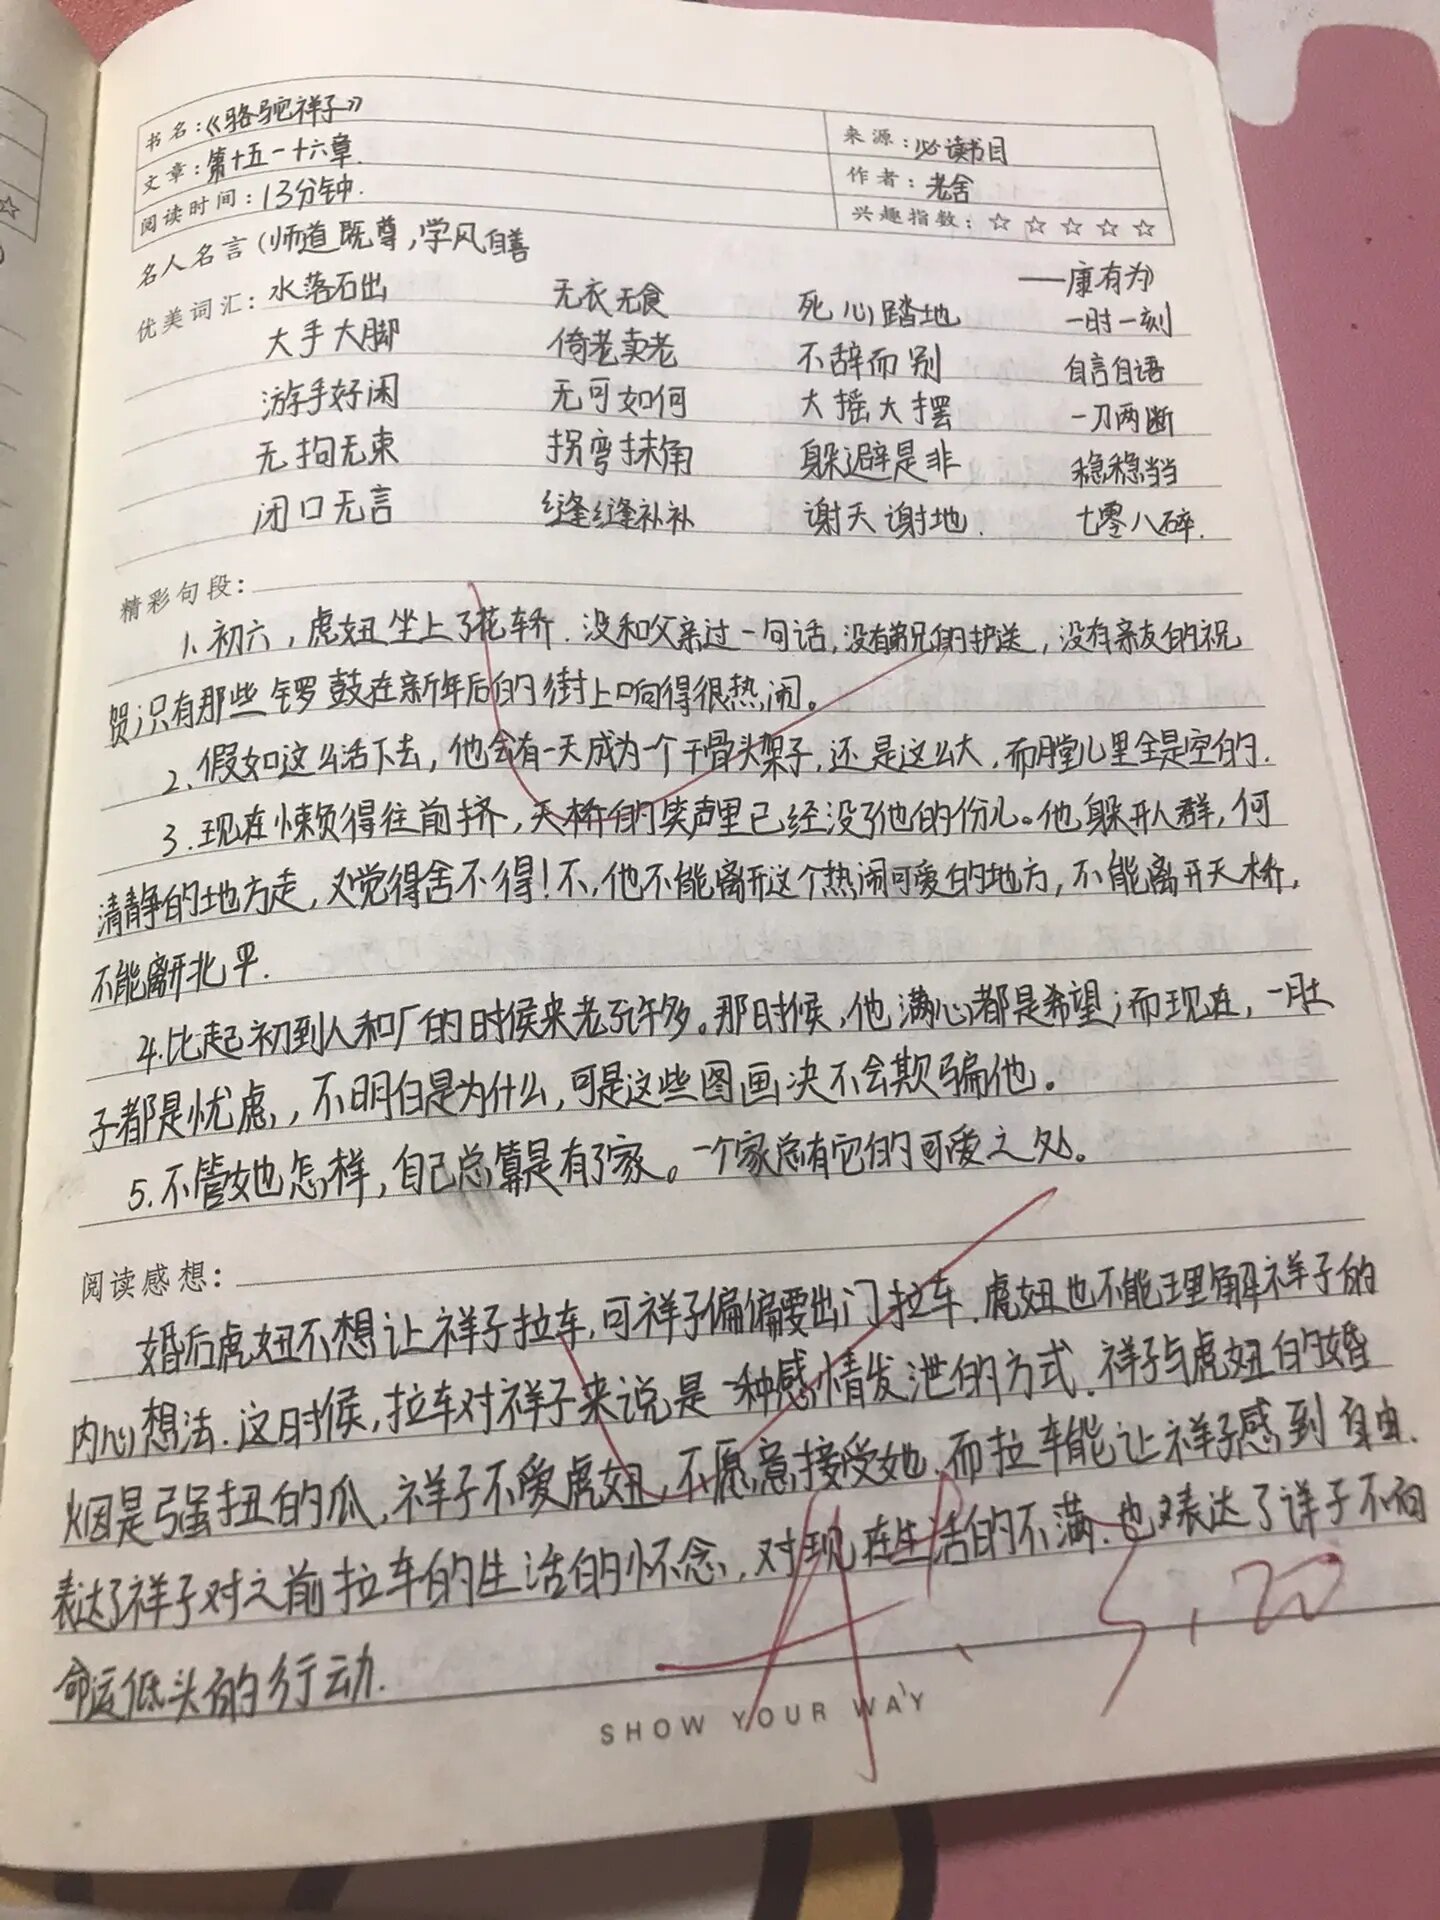 书名：《骆驼祥子》 来源：必读书目
文章：第十五一十六章. 作者：老舍
阅读时间：13分钟. 兴趣指数：☆ ☆ ☆ ☆ ☆
名人名言（师道既尊，学风自善
——康有为）
优美词汇：水落石出 无衣无食 死心踏地 一时一刻
大手大脚 倚老卖老 不辞而别 自言自语
游手好闲 无可如何 大摇大摆 一刀两断
无拘无束 拐弯抹角 躲避是非 稳稳当当
闭口无言 缝缝补补 谢天谢地. 七零八碎.
精彩句段：
1、初六，虎妞坐上了花轿.没和父亲过一句话，没有弟兄的护送，没有亲友的祝
贺；只有那些锣鼓在新年后的街上响得很热闹。
2、假如这么活下去，他会有一天成为一个干骨头架子，还是这么大，而膛儿里全是空的.
3.现在懒负得往前挤，天桥的笑声里已经没了他的份儿。他躲开人群，何
清静的地方走，又觉得舍不得！不，他不能离开这个热闹可爱的地方，不能离开天桥，
不能离开北平.
4.比起初到人和厂的时候来老死许多。那时候，他满心都是希望；而现在，一肚
子都是忧虑，，不明白是为什么，可是这些图画决不会欺骗他。
5.不管她怎样，自己总算是有了家。一个家总有它的可爱之处。
阅读感想：
婚后虎妞不想让祥子拉车，可祥子偏偏要出门拉车.虎妞也不能理解祥子的
内心想法.这时候，拉车对祥子来说是一种感情发泄的方式.祥子与虎妞的婚
姻是强扭的瓜，祥子不爱虎妞，不愿意接受她.而拉车能让祥子感到自由.
表达了祥子对之前拉车的生活的怀念、对现在生活的不满.也表达了详子不向
命运低头的行动.
A+ 5.20
SHOW YOUR WAY